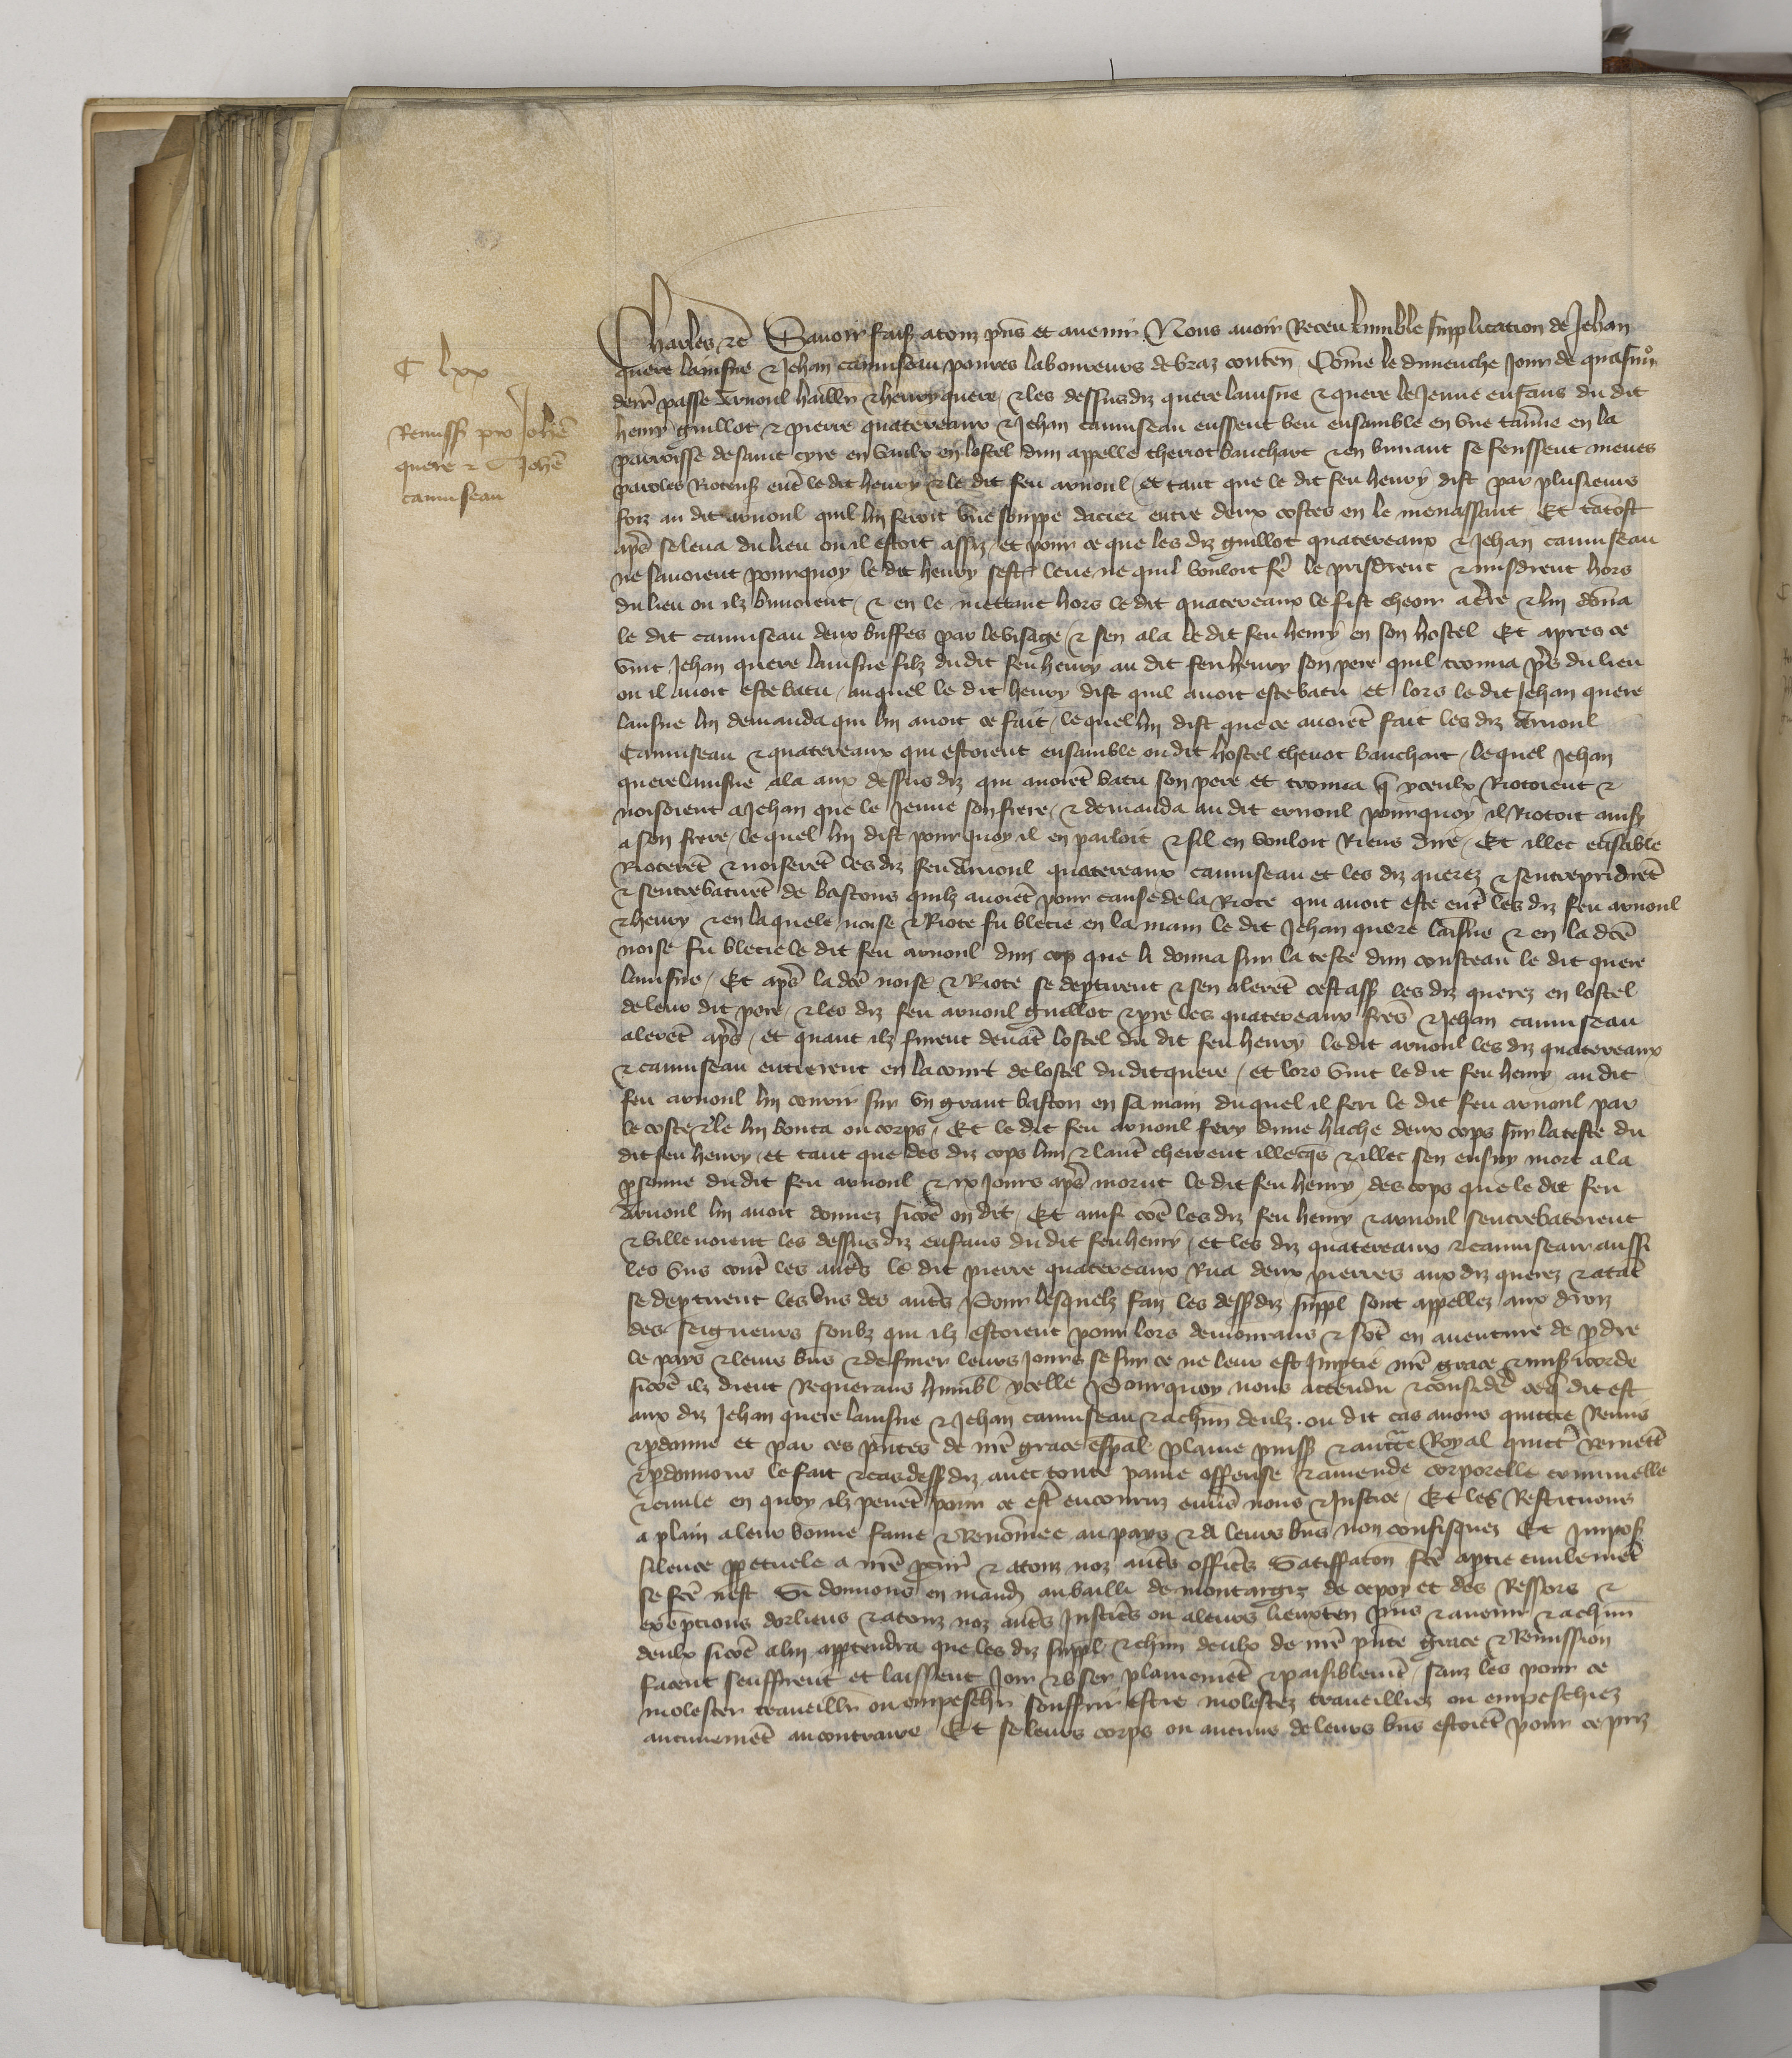 C lxx
Remiss pro Johē
quere et Johē
camuseau
Charles etc Savoir faisz a touz pñs et avenir Nous avoir Receu humble supplication de Jehan
quere lainsne et Jehan camuseau povres laboureurs de braz conten̄ Cōme le dimenche Jour de quasimo
derr̄ passe Arnoul et henry quere et les dessusdiz quere lainsne et quere le Jeune enfans du dit
henry guillot et pierre quatereaux et Jehan camuseau eussent beu ensamble en une tav̄ne en la
parroisse de saint cyre en vaulx en lostel dun appelle theriot bauchart et en buvant se feussent meues
paroles Rioteusz ent̄ le dit henry et le dit feu arnoul et tant que le dit feu henry dist par plusieurs
foiz au dit arnoul quil lui feroit une souppe dacier entre deux costes en le menassant Et tātost
ap̄s se leva du lieu ou il estoit assiz et pour ce que les diz guillot quatereaux et Jehan camuseau
ne savoient pourquoy le dit henry sest leve ne quil vouloit fē le prisdrent et misdrent hors
du lieu ou ilz buvoient et en le mettant hors le dit quatereaux le fist cheoir a t̄re et lui dōna
le dit camuseau deux buffes par le visage et sen ala le dit feu henry en son hostel Et apres ce
vint Jehan quere lainsne filz du dit feu henry au dit feu henry son pere quil trouva p̄s du lieu
ou il avoit este batu auquel le dit henry dist quil avoit este batu et lors le dit Jehan quere
lainsne lui demanda qui lui avoit ce fait lequel lui dist que ce avoiēt fait les diz Arnoul
Camuseau et quatereaux qui estoient ensamble ou dit hostel theriot bauchart lequel Jehan
quere lainsne ala aux dessus diz qui avoiēt batu son pere et trouva q̄ yceulx Riotoient et
noisoient a Jehan que le Jeune son frere et demanda au dit ernoul pourquoy il Riotoit ainsy
a son frere lequel lui dist pour quoy il en parloit et sil en vouloit Riens dire Et illec ensāble
Rioterēt et noiserēt les diz feu Arnoul quatereaux camuseau et les diz querez et sentreprid̄rēt
et sentrebatirēt de bastons quilz avoiēt pour cause de la Riote qui avoit este ent̄ les diz feu arnoul
et henry et en laquele noise et Riote fu blecie en la main le dit Jehan quere lāisne et en la d̄cē
noise fu blecie le dit feu arnoul dun cop que li donna sur la teste dun cousteau le dit quere
lainsne Et ap̄s la d̄cē noise et Riote se dep̄tirent et sen alerēt cestass les diz querez en lostel
de leur dit pere et les diz feu arnoul guillot et pr̄e les quatereaux fr̄es et Jehan camuseau
alerēt ap̄s et quant ilz furent devāt lostel du dit feu henry le dit arnoul les diz quatereaux
et camuseau entrerent en la court de lostel du dit quere et lors vint le dit feu henry au dit
feu arnoul lui courir sur un grant baston en sa main duquel il feri le dit feu arnoul par
le coste et le lui bouta ou corps Et le dit feu arnoul fery dune hache deux cops sur la teste du
dit feu henry et tant que des diz cops lun et laut̄ cheirent illecq̄s et illec sen ensuy mort a la
p̄sonne du dit feu arnoul et ix Jours ap̄s morut le dit feu henry des cops que le dit feu
Arnoul lui avoit donnez sicōe on dit Et ainsi cōe les diz feu henry et arnoul sentrebatoient
et villenoient les dessus diz enfans du dit feu henry et les diz quatereaux et camuseau aussi
les uns cont̄ les aut̄s le dit pierre quatereaux Rua deux pierres aux diz querez et atāt
se dep̄tirent les uns des aut̄s Pour lesquelz faiz les dessdiz suppl sont appellez aux droiz
des seigneurs soubz qui ilz estoient pour lors demourans et sōt en aventure de p̄dre
le pays et leurs bn̄s et de finer leurs Jours se sur ce ne leur est Imp̄tie nr̄e grace et mis̄icorde
sicōe ilz dient Requerans humbl ycelle Pourquoy nous attendu et consid̄e ceq̄ dit est
aux diz Jehan quere lainsne et Jehan camuseau et a chūn deulz ou dit cas avons quittie Remis
et p̄donne et par ces p̄ntes de nr̄e grace esp̄al plaine puiss et auct̄te Royal quitt̄ remett̄
et p̄donnons le fait et cas dess diz avec toute paine offense et amende corporelle criminelle
et civile en quoy ilz peuēt pour ce est̄ encouruz env̄s nous et Justice Et les Restituons
a plain a leur bonne fame et Renōmee au pays et a leurs bn̄s non confisquez Et Imposz
silence pp̄etuele a nr̄e p̄cur̄ et a touz noz aut̄s offic̄s Satiffacōn fc̄e a p̄tie civilemēt
se fc̄e nest Si donnons en mand̄ au bailli de montargiz de cepoy et des Ressors et
exēpcions dorliens et a touz noz aut̄s Justic̄s ou a leurs lieuxten pñs et avenir et a chūn
deulx sicōe a lui app̄tendra que les diz suppl et chūn deulx de nr̄e p̄nte grace et Remission
facent seuffrent et laissent Joir et user plainemēt et paisiblemēt sanz les pour ce
molester travaillr ou empeschr souffrir estre molestez travailliez ou empeschiez
aucunemēt au contraire Et se leurs corps ou aucuns de leurs bn̄s estoiēt pour ce priz